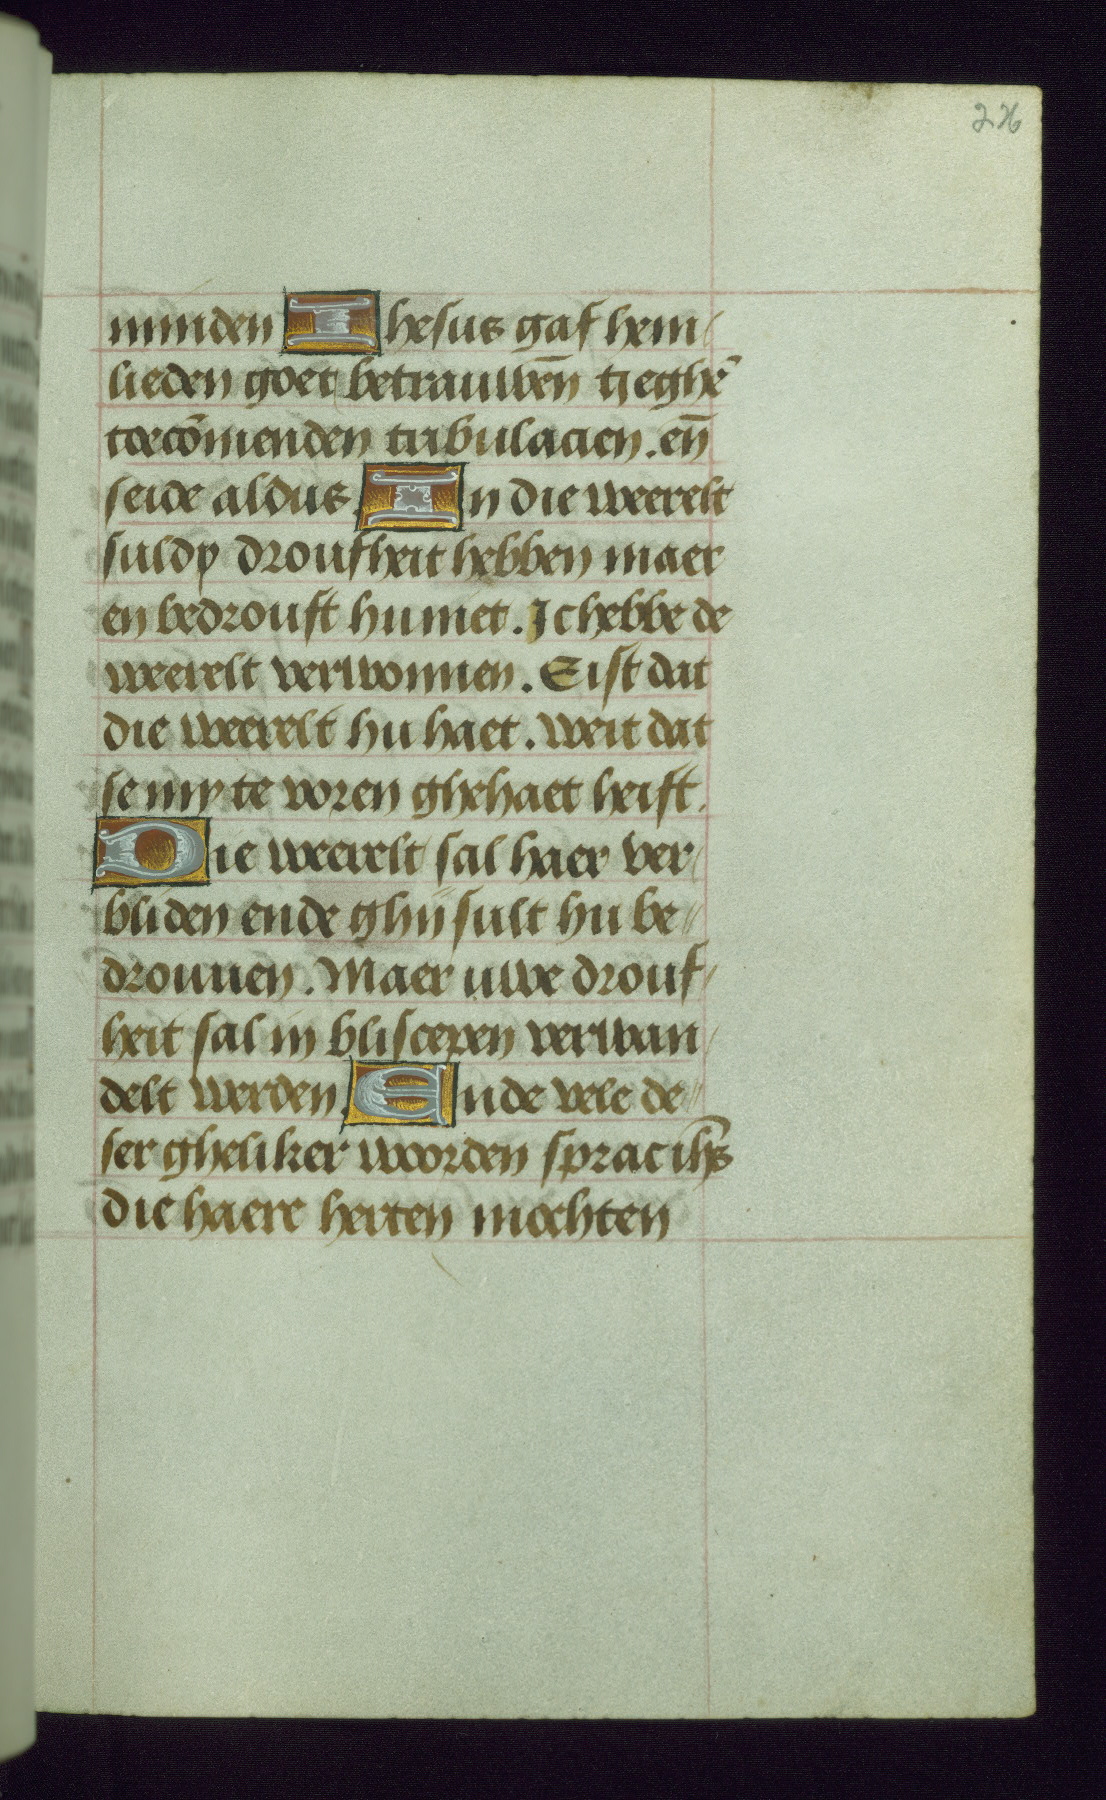 226
minden Ihesus gaf hem/
lieden goet betrauwēn tjeghē
toecōmenden tribulacien. eñ
seide aldus. In die weerelt
suldy droufheit hebben maer
en bedrouft hu niet. Ic hebbe de
weerelt verwonnen. Eist dat
die weerelt hu haet. Weit dat
se my te voren ghehaet heift.
Die weerelt sal haer ver/
bliden ende ghij sult hu be//
drouuen. Maer uwe drouf/
heit sal in bliscepen verwan/
delt werden. Ende vele de//
ser gheliker woorden sprac ihs̄
die haere herten mochten